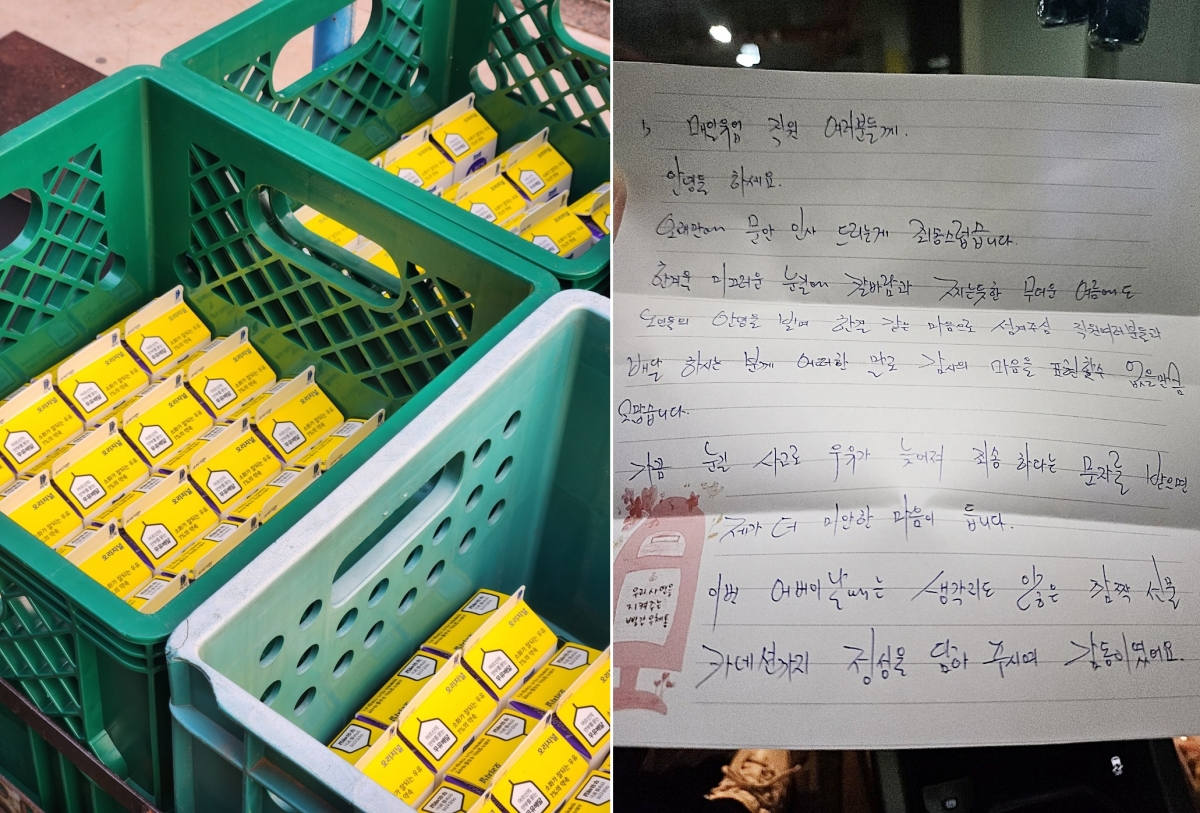 오리지널
소화가 잘되는 우유
1%의 약속
어르신의
안부를 묻는
우유배달
매일유업 직원 여러분들께.
안녕들 하세요.
오래만에 문안 인사 드리는게 죄송스럽습니다.
한겨울 미끄러운 눈길에 칼바람과 찌는듯한 무더운 여름에도
노인들의 안녕을 빌며 한결 같은 마음으로 섬겨주심 직원여러분들과
배달 하시는 분께 어떠한 말로 감사의 마음을 표현할수 없을만큼
고맙습니다.
가끔 눈길 사고로 우유가 늦어져 죄송 하다는 문자를 받으면
제가 더 미안한 마음이 듭니다.
이번 어버이날에는 생각지도 않은 깜짝 선물
카네션까지 정성을 담아 주시여 감동이였어요.
우리 사연을
지켜주는
빨간 우체통